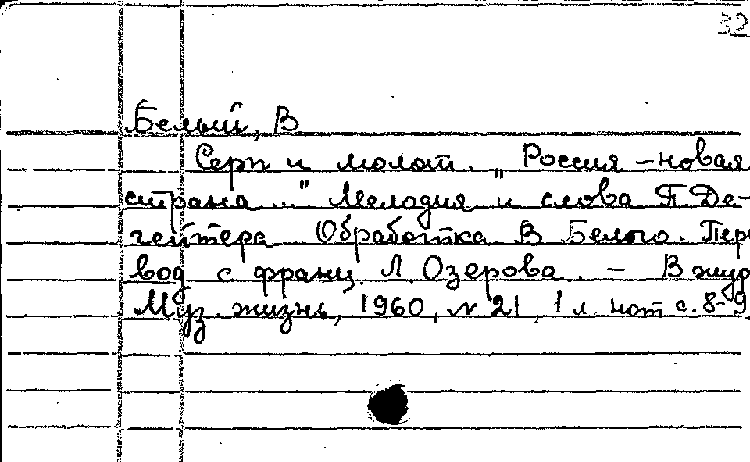 32
Белый, В
Серп и молот. "Россия - новая
страна..." Мелодия и слова П. Де-
гейтера. Обработка В. Белого. Пере
вод с франц. Л. Озерова. - В жур
Муз. жизнь, 1960, № 21, 1 л. нот с. 8-9